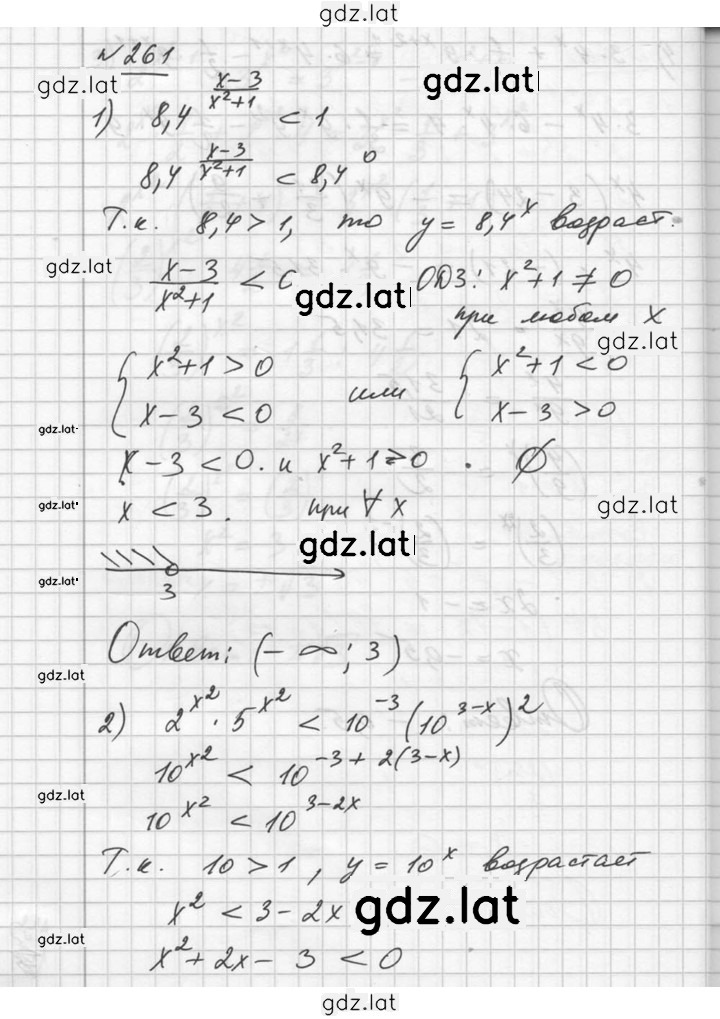 gdz.lat
№ 261
gdz.lat gdz.lat
1) 8,4^((x-3)/(x²+1)) < 1
8,4^((x-3)/(x²+1)) < 8,4^0
Т.к. 8,4 > 1, то y = 8,4^x возраст.
gdz.lat
(x-3)/(x²+1) < 0 ОДЗ: x²+1 ≠ 0
gdz.lat
при любом x
gdz.lat
{ x²+1 > 0 или { x²+1 < 0
{ x-3 < 0 { x-3 > 0
gdz.lat
x-3 < 0. и x²+1 > 0 . ∅
x < 3. при ∀ x
gdz.lat gdz.lat
gdz.lat
gdz.lat
3
Ответ: (-∞; 3)
gdz.lat gdz.lat
2) 2^(x²) · 5^(x²) < 10^(-3) (10^(3-x))²
10^(x²) < 10^(-3+2(3-x))
gdz.lat gdz.lat
10^(x²) < 10^(3-2x)
Т.к. 10 > 1, y = 10^x возрастает
x² < 3-2x
gdz.lat
gdz.lat gdz.lat
x²+2x-3 < 0
gdz.lat